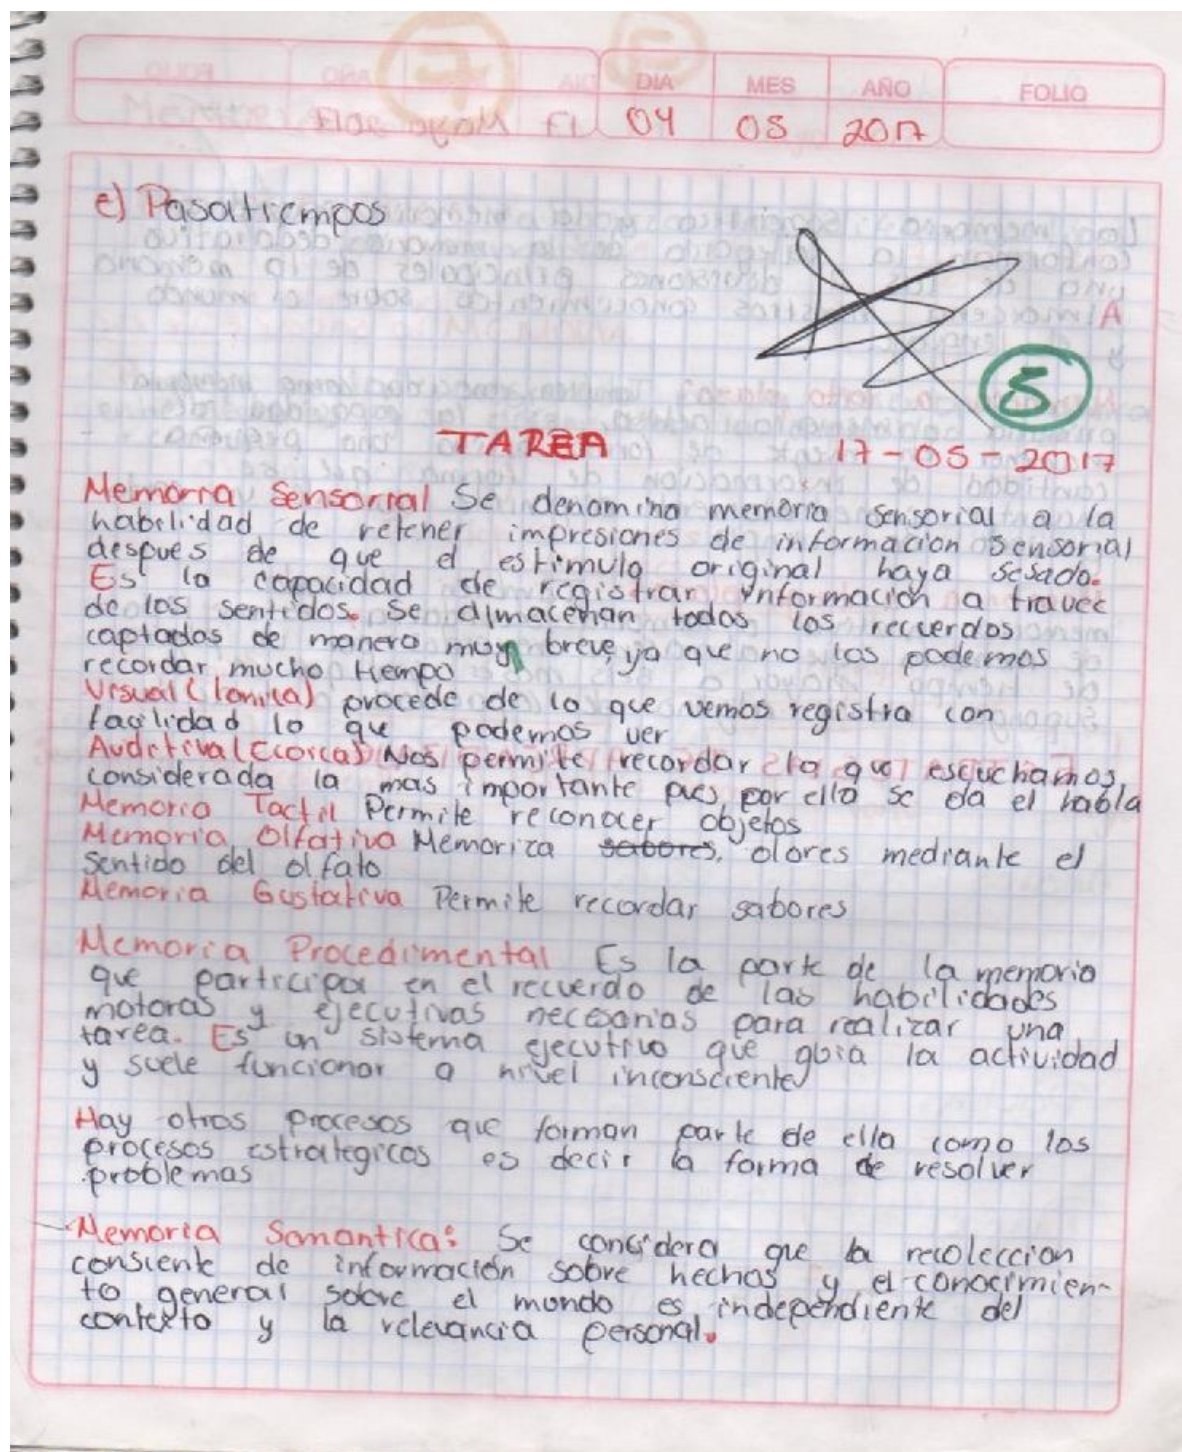 DIA MES AÑO FOLIO
04 05 2017
e) Pasatiempos
5
TAREA 17-05-2017
Memoria Sensorial Se denomina memoria sensorial a la
habilidad de retener impresiones de informacion sensorial
despues de que el estimulo original haya sesado.
Es la capacidad de registrar informacion a travec
de los sentidos. Se almacenan todos los recuerdos
captados de manera muy breve, ya que no los podemos
recordar mucho tiempo
Visual (Iconica) procede de lo que vemos registra con
facilidad lo que podemos ver
Auditiva (Ecoica) Nos permite recordar lo que escuchamos,
considerada la mas importante pues por ello se da el habla
Memoria Tactil Permite reconocer objetos
Memoria Olfativa Memoriza sabores, olores mediante el
sentido del olfato
Memoria Gustativa Permite recordar sabores
Memoria Procedimental Es la parte de la memoria
que participa en el recuerdo de las habilidades
motoras y ejecutivas necesarias para realizar una
tarea. Es un sistema ejecutivo que guia la actividad
y suele funcionar a nivel inconsciente
Hay otros procesos que forman parte de ella como los
procesos estrategicos es decir la forma de resolver
problemas
Memoria Semantica: Se considera que la recoleccion
consiente de información sobre hechos y el conocimien-
to general sobre el mundo es independiente del
contexto y la relevancia personal.